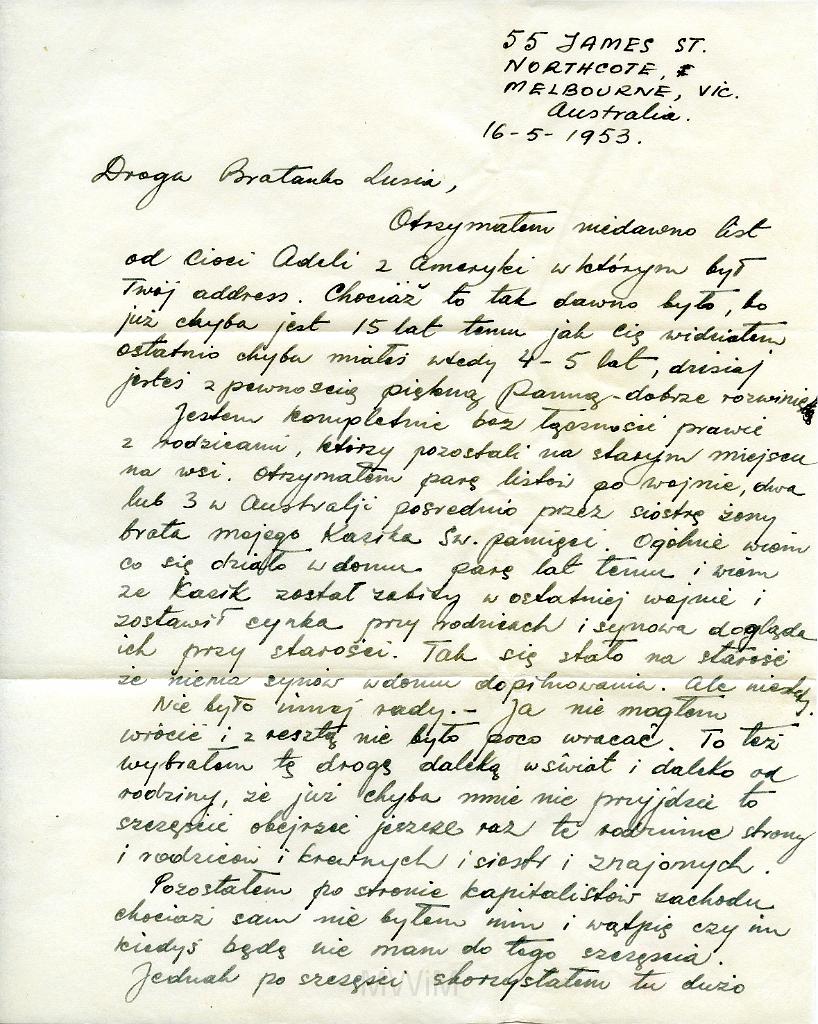 55 JAMES ST.
NORTHCOTE,
MELBOURNE, VIC.
Australia.
16-5-1953.
Droga Bratanko Lusia,
Otrzymałem niedawno list
od Cioci Adeli z Ameryki w którym był
Twój address. Chociaż to tak dawno było, bo
już chyba jest 15 lat temu jak Cię widziałem
ostatnio chyba miałeś wtedy 4-5 lat, dzisiaj
jesteś z pewnością piękną Panną - dobrze rozwinię
Jestem kompletnie bez łączności prawie
z rodzicami, którzy pozostali na starym miejscu
na wsi. Otrzymałem parę listów po wojnie, dwa
lub 3 w Australji pośrednio przez siostrę żony
brata mojego Kazika Św. pamięci. Ogólnie wiem
co się działo w domu parę lat temu i wiem
że Kazik został zabity w ostatniej wojnie i
zostawił synka przy rodzicach i synowa dogląda
ich przy starości. Tak się stało na starość
że niema synów w domu dopilnowania. Ale niestety.
Nie było innej rady. - Ja nie mogłem
wrócić i z resztą nie było poco wracać. To też
wybrałem tę drogę daleką w świat i daleko od
rodziny, że już chyba mnie nie przyjdzie to
szczęście obejrzeć jeszcze raz te rodzinne strony
i rodziców i krewnych i siostr i znajomych.
Pozostałem po stronie kapitalistów zachodu
chociaż sam nie byłem nim i wątpię czy im
kiedyś będę nie mam do tego szczęścia.
Jednak po szczęści skorzystałem tu dużo
MWiM